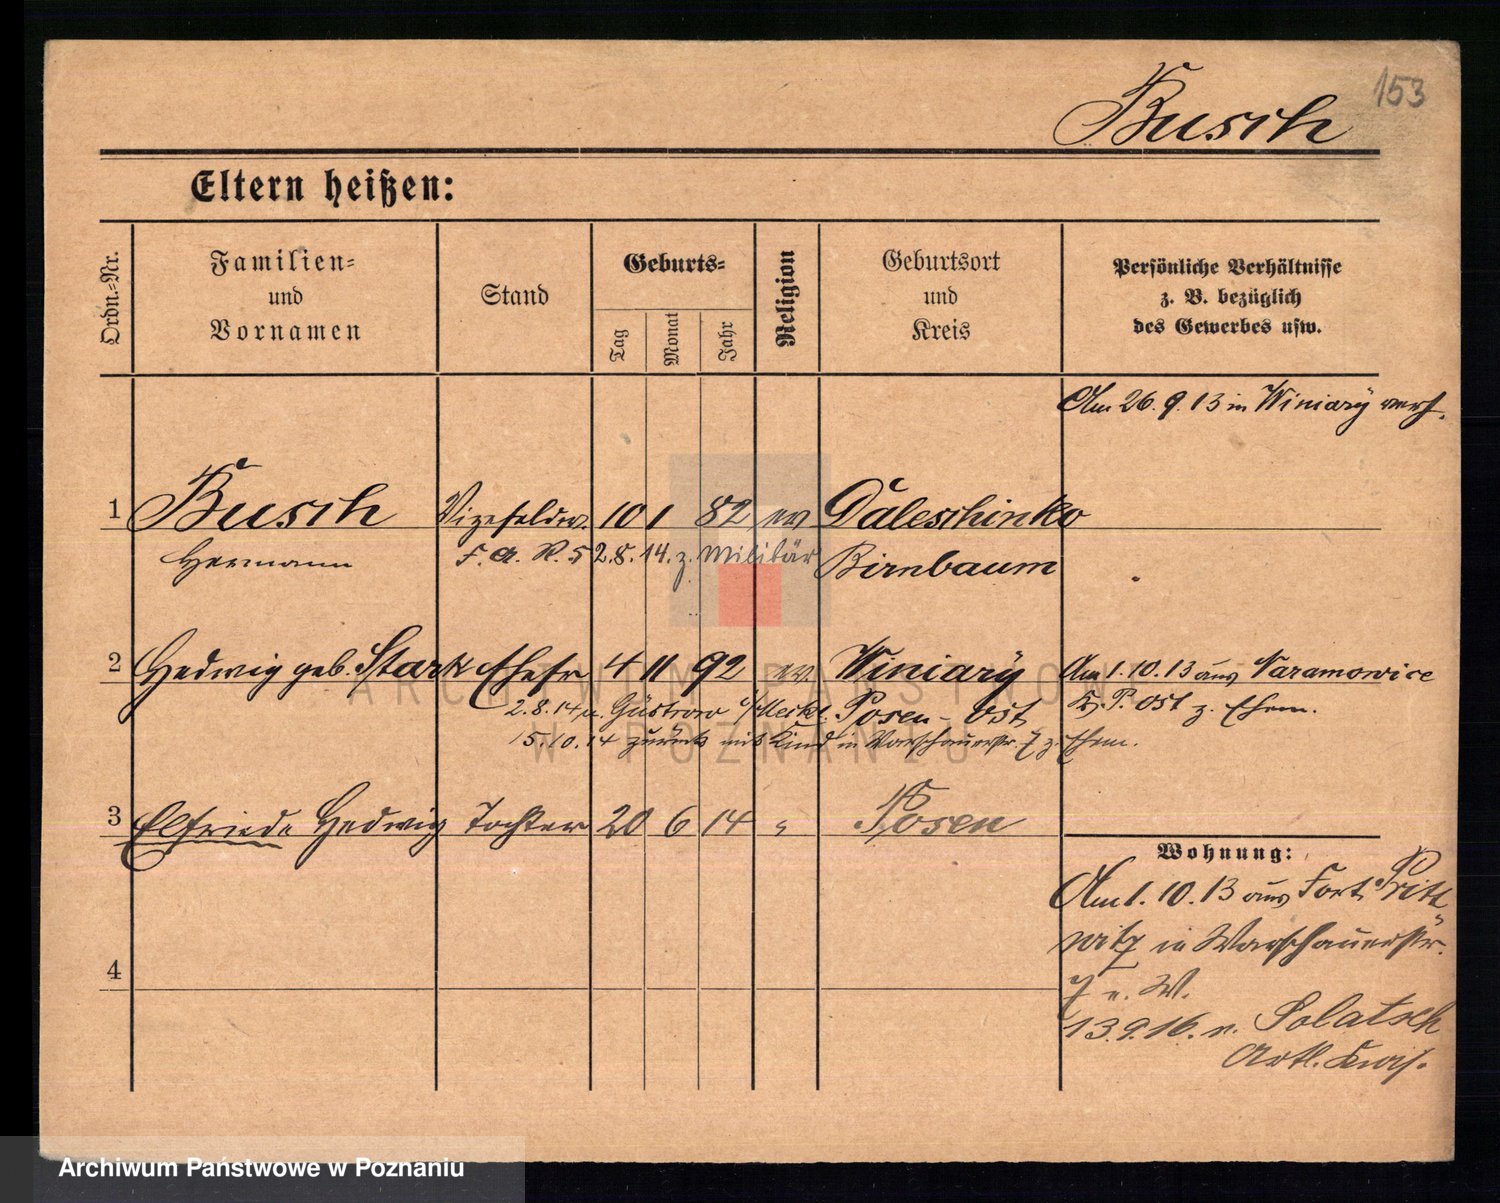 153
Busch
Eltern heißen:
Ordn.-Nr.
Familien-
und
Vornamen
Stand
Geburts-
Tag
Monat
Jahr
Religion
Geburtsort
und
Kreis
Persönliche Verhältnisse
z. B. bezüglich
des Gewerbes usw.
Am 26. 9. 13 in Winiary verh.
1 Busch Vizefeldw. 10 1 82 ev Daleschinko
Hermann F. A. R. 5 2.8.14. z. Militär Birnbaum
2 Hedwig geb. Stark Ehefr 4 11 92 ev. Winiary Am 1. 10. 13 aus Naramowice
2.8.14 n. Güstrow i/Meckl. Posen - Ost Kr. P. Ost z. Ehem.
15.10.14 zurück mit Kind in Warschauerstr. 7 z. Ehem.
3 Elfriede Hedwig Tochter 20 6 14 " Posen
Wohnung:
Am 1. 10. 13 aus Fort Pritt
witz in Warschauerstr.
4
7 n. W.
13.9.16. n. Solatsch
Artl. Kas.
ARCHIWUM PAŃSTWOWE
W POZNANIU
Archiwum Państwowe w Poznaniu